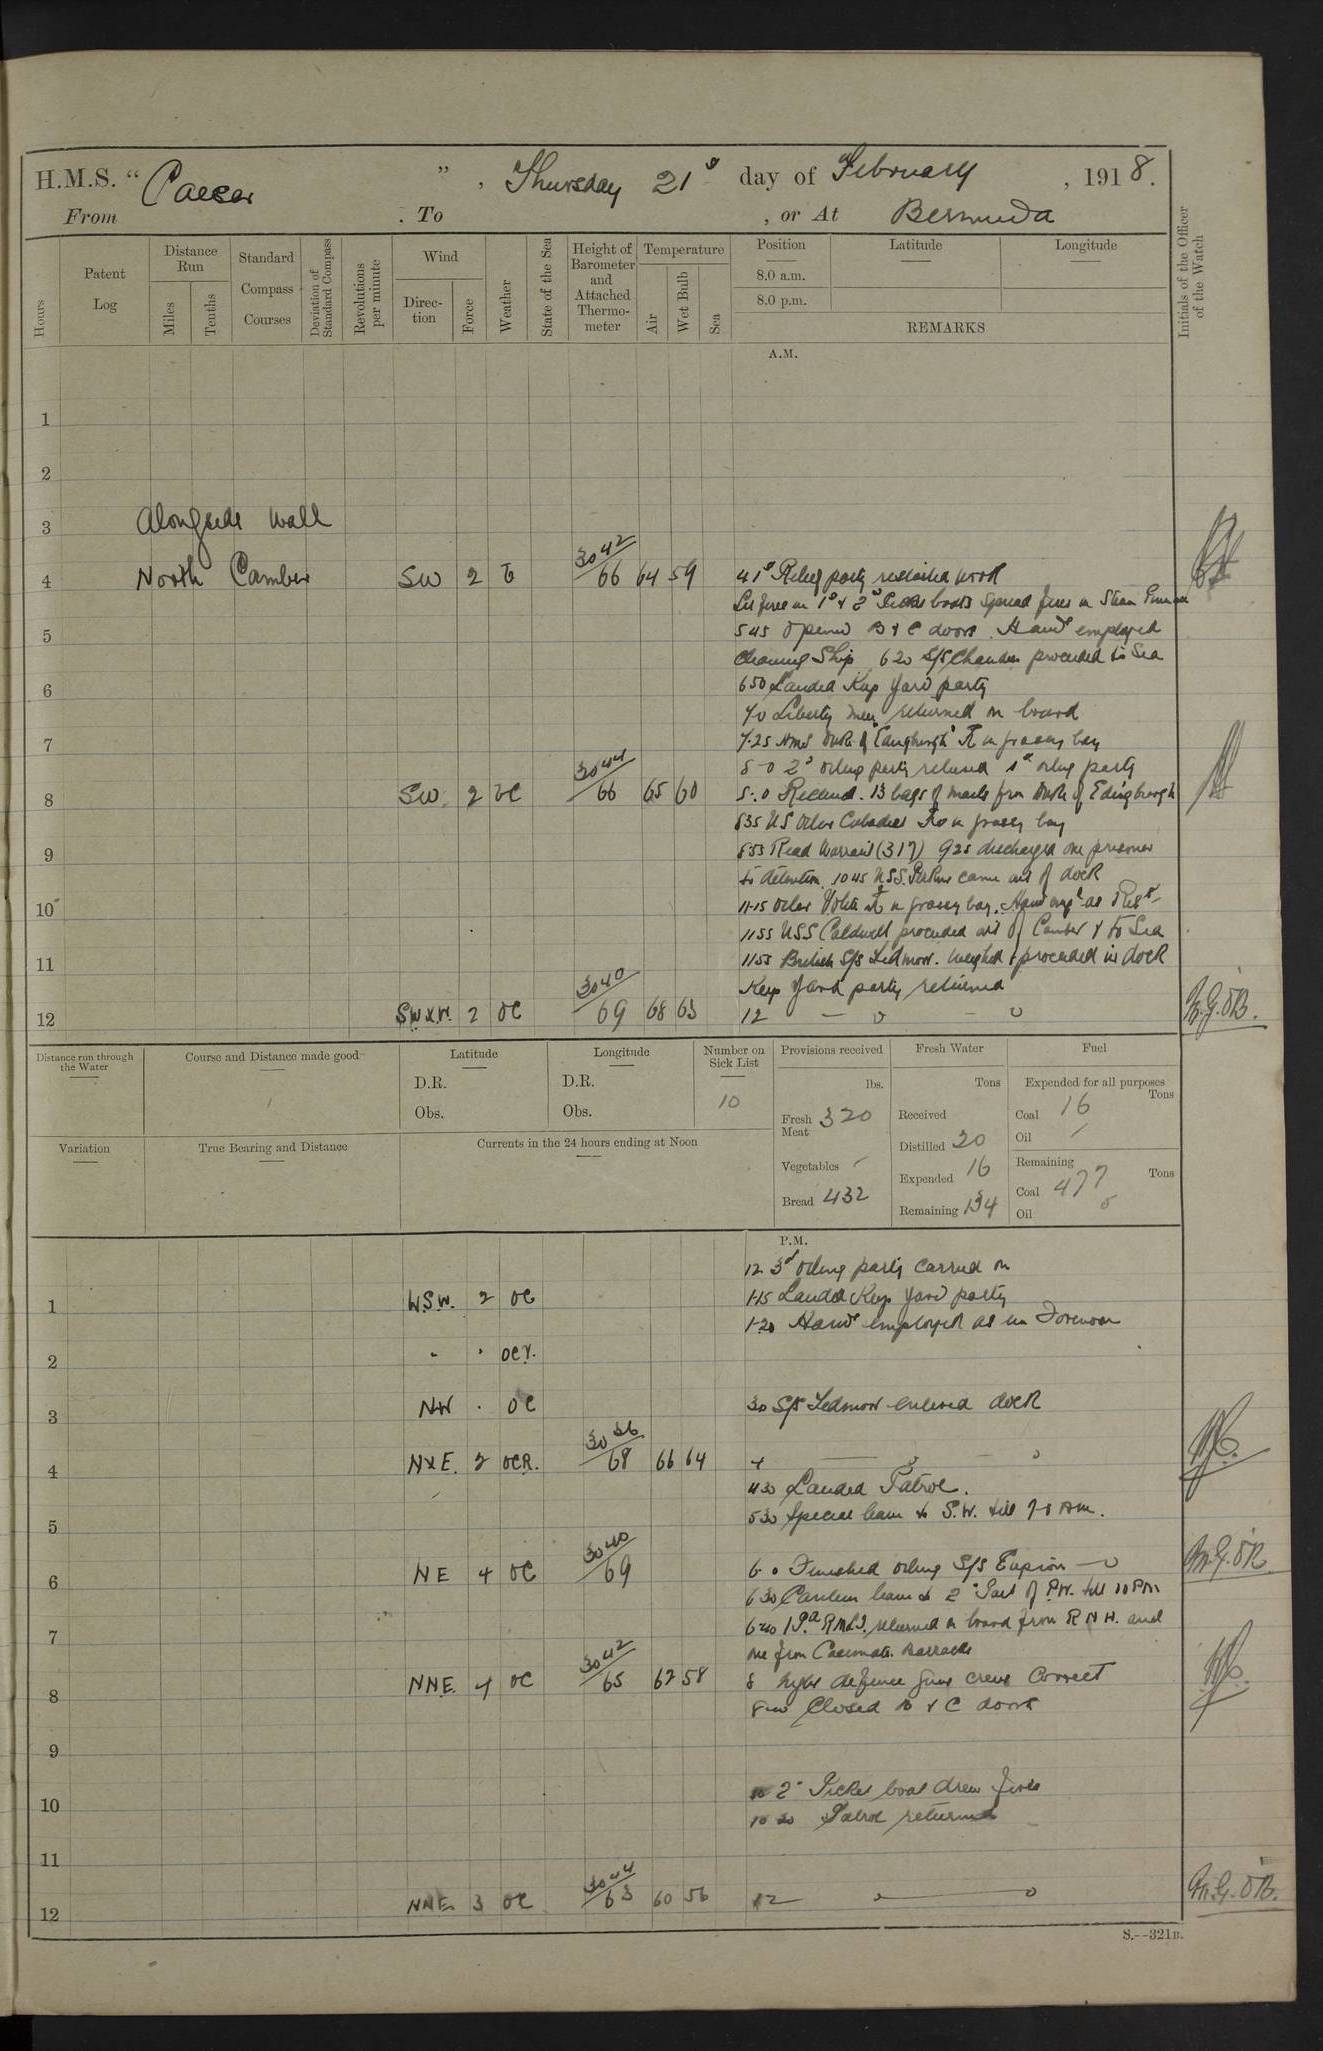 H.M.S. " Caesar ", Thursday 21st day of February, 1918.
From . To , or At Bermuda
Hours
Patent Log
Distance Run
Miles
Tenths
Standard Compass Courses
Deviation of Standard Compass
Revolutions per minute
Wind
Direction
Force
Weather
State of the Sea
Height of Barometer and Attached Thermometer
Temperature
Air
Wet Bulb
Sea
Position
8.0 a.m.
8.0 p.m.
Latitude
Longitude
REMARKS
Initials of the Officer of the Watch
A.M.
1
2
3 Alongside Wall
4 North Camber SW 2 b 3042/66 64 59 4 1st Relief party restarted work
Lit fires in 1st & 2nd Picket boats Spread fires in Steam Pinnace
5 545 Opened B & C doors. Hands employed
cleaning Ship 620 S/S proceeded to Sea
6 650 Landed Keep Yard party
7.0 Liberty men returned on board
7 7.25 HMS Duke of Edinburgh in grassy bay
8.0 2nd oiling party relieved 1st oiling party
8 SW. 2 bc 3044/66 65 60 8.0 Received. 13 bags of mails from Duke of Edinburgh
835 US Oiler in grassy bay
9 853 Read Warrant (317) 925 discharged one prisoner
to detention. 1045 USS. Perkins came out of dock
10 11.15 Oiler in grassy bay. Hands empd as Reqd
1155 USS Caldwell proceeded out of Camber & to Sea
11 1155 British S/S Ledmore. weighed & proceeded in dock
Keep Yard party returned
12 SWxW. 2 oc 3040/69 68 63 12 — " — "
Distance run through the Water
Course and Distance made good
Latitude
D.R.
Obs.
Longitude
D.R.
Obs.
Number on Sick List
10
Provisions received
lbs.
Fresh Meat 320
Vegetables /
Bread 432
Fresh Water
Tons
Received
Distilled 20
Expended 16
Remaining 134
Fuel
Expended for all purposes
Tons
Coal 16
Oil /
Remaining
Tons
Coal 477
Oil
Variation
True Bearing and Distance
Currents in the 24 hours ending at Noon
P.M.
12 3rd oiling party carried on
1 W.S.W. 2 oc 1.15 Landed Keep Yard party
1.20 Hands employed as in Forenoon
2 " " ocr.
3 NW " oc 30 S/S Ledmore entered dock
4 NxE. 2 ocR. 3036/68 66 64 4 — " — "
430 Landed Patrol.
5 530 Special leave to S.W. till 7.0 AM.
6 NE 4 oc 3040/69 6.0 Finished oiling S/S Eupion
630 Canteen leave to 2nd Part of P.W. till 10 PM
7 640 1 Pte RMLI. returned on board from RNH. and
one from Casemate Barracks
8 NNE. 4 oc 3042/65 62 58 8 Night defence guns crews correct
Closed B & C doors
9
10 10 2nd Picket boat drew fires
10 30 Patrol returned
11
12 NNE. 3 oc 3044/63 60 56 12 — " — "
S.—321B.